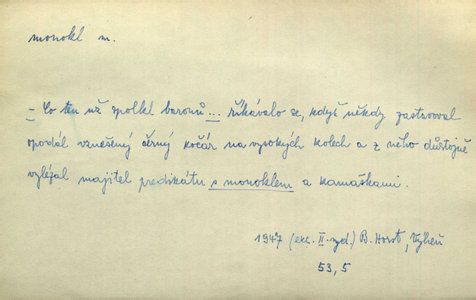 monokl m.
– Co ten už spolkl baronů... říkávalo se, když někdy zastavoval
opodál vznešený černý kočár na vysokých kolech a z něho důstojně
vylézal majitel predikátu s monoklem a kamaškami.
1947 (exc. II. vyd.) B. Horst, Vyheň
53, 5